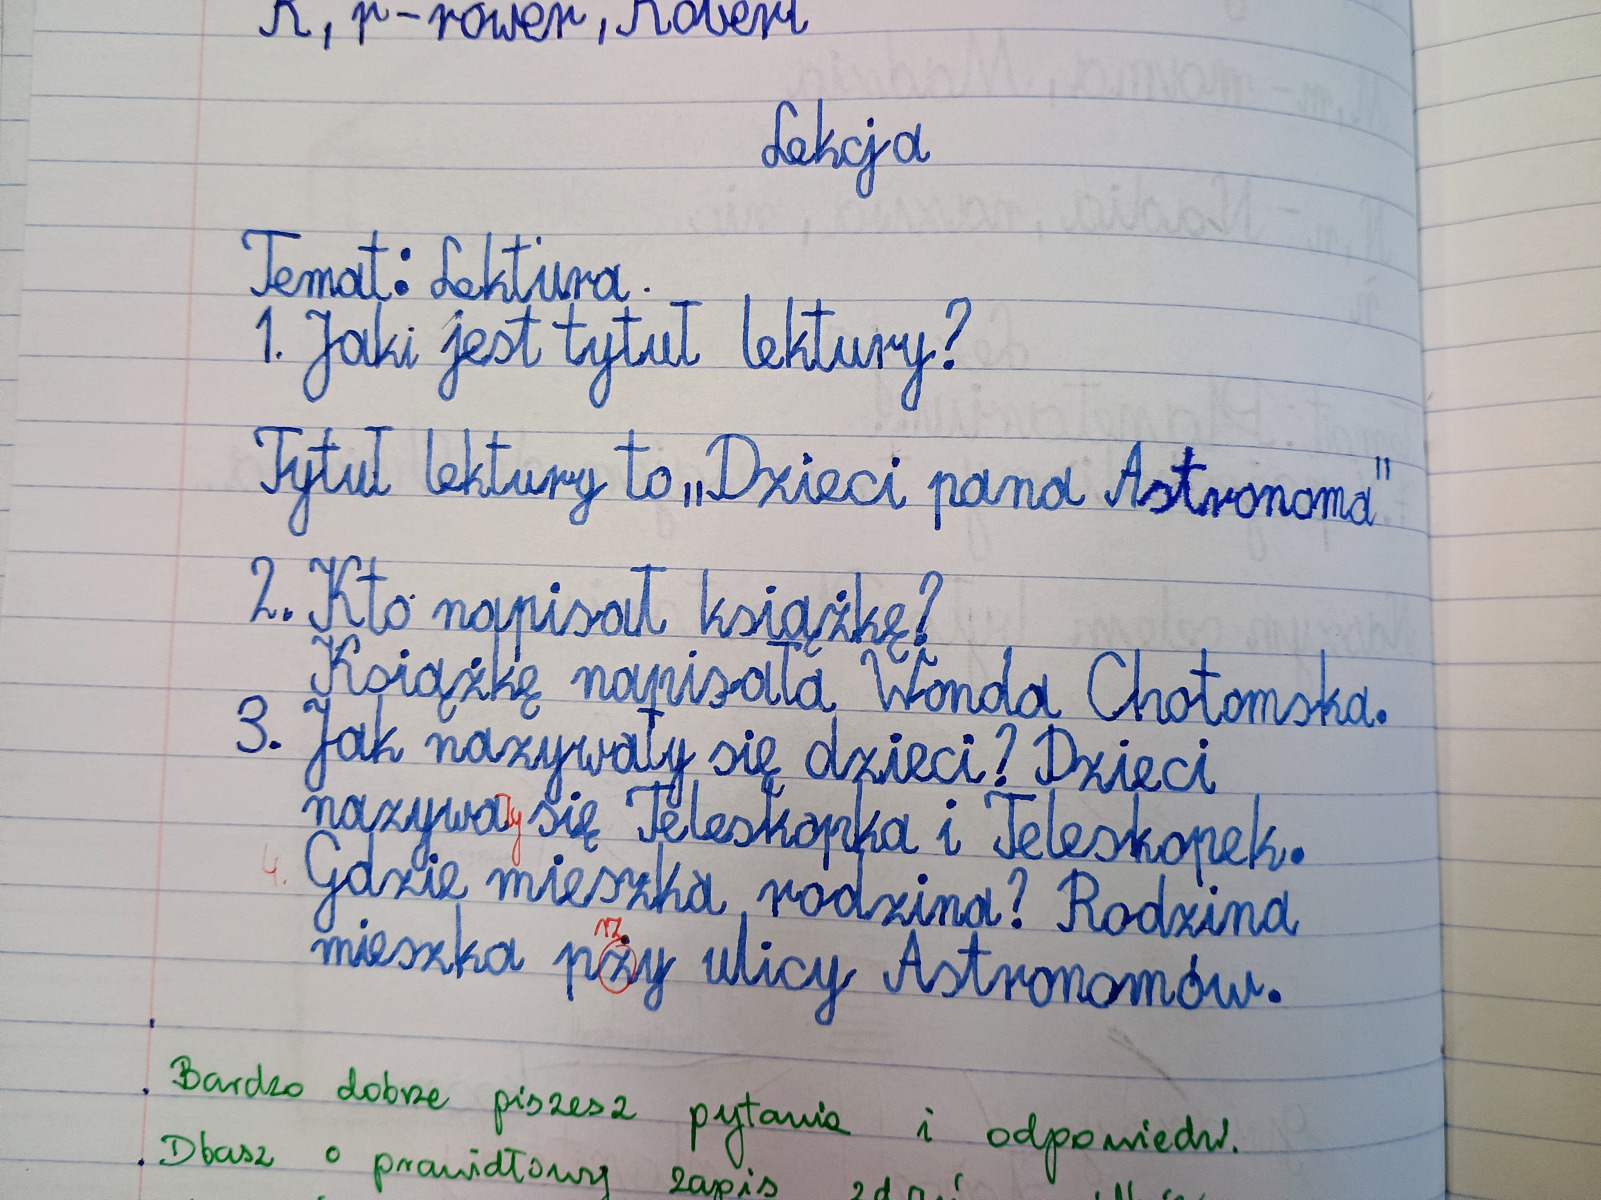 R, r-rower, Robert
Lekcja
Temat: Lektura.
1. Jaki jest tytuł lektury?
Tytuł lektury to „Dzieci pana Astronoma"
2. Kto napisał książkę?
Książkę napisała Wanda Chotomska.
3. Jak nazywały się dzieci? Dzieci
nazywały się Teleskopka i Teleskopek.
4. Gdzie mieszka rodzina? Rodzina
rz
mieszka pży ulicy Astronomów.
Bardzo dobrze piszesz pytania i odpowiedzi.
Dbasz o prawidłowy zapis zdań